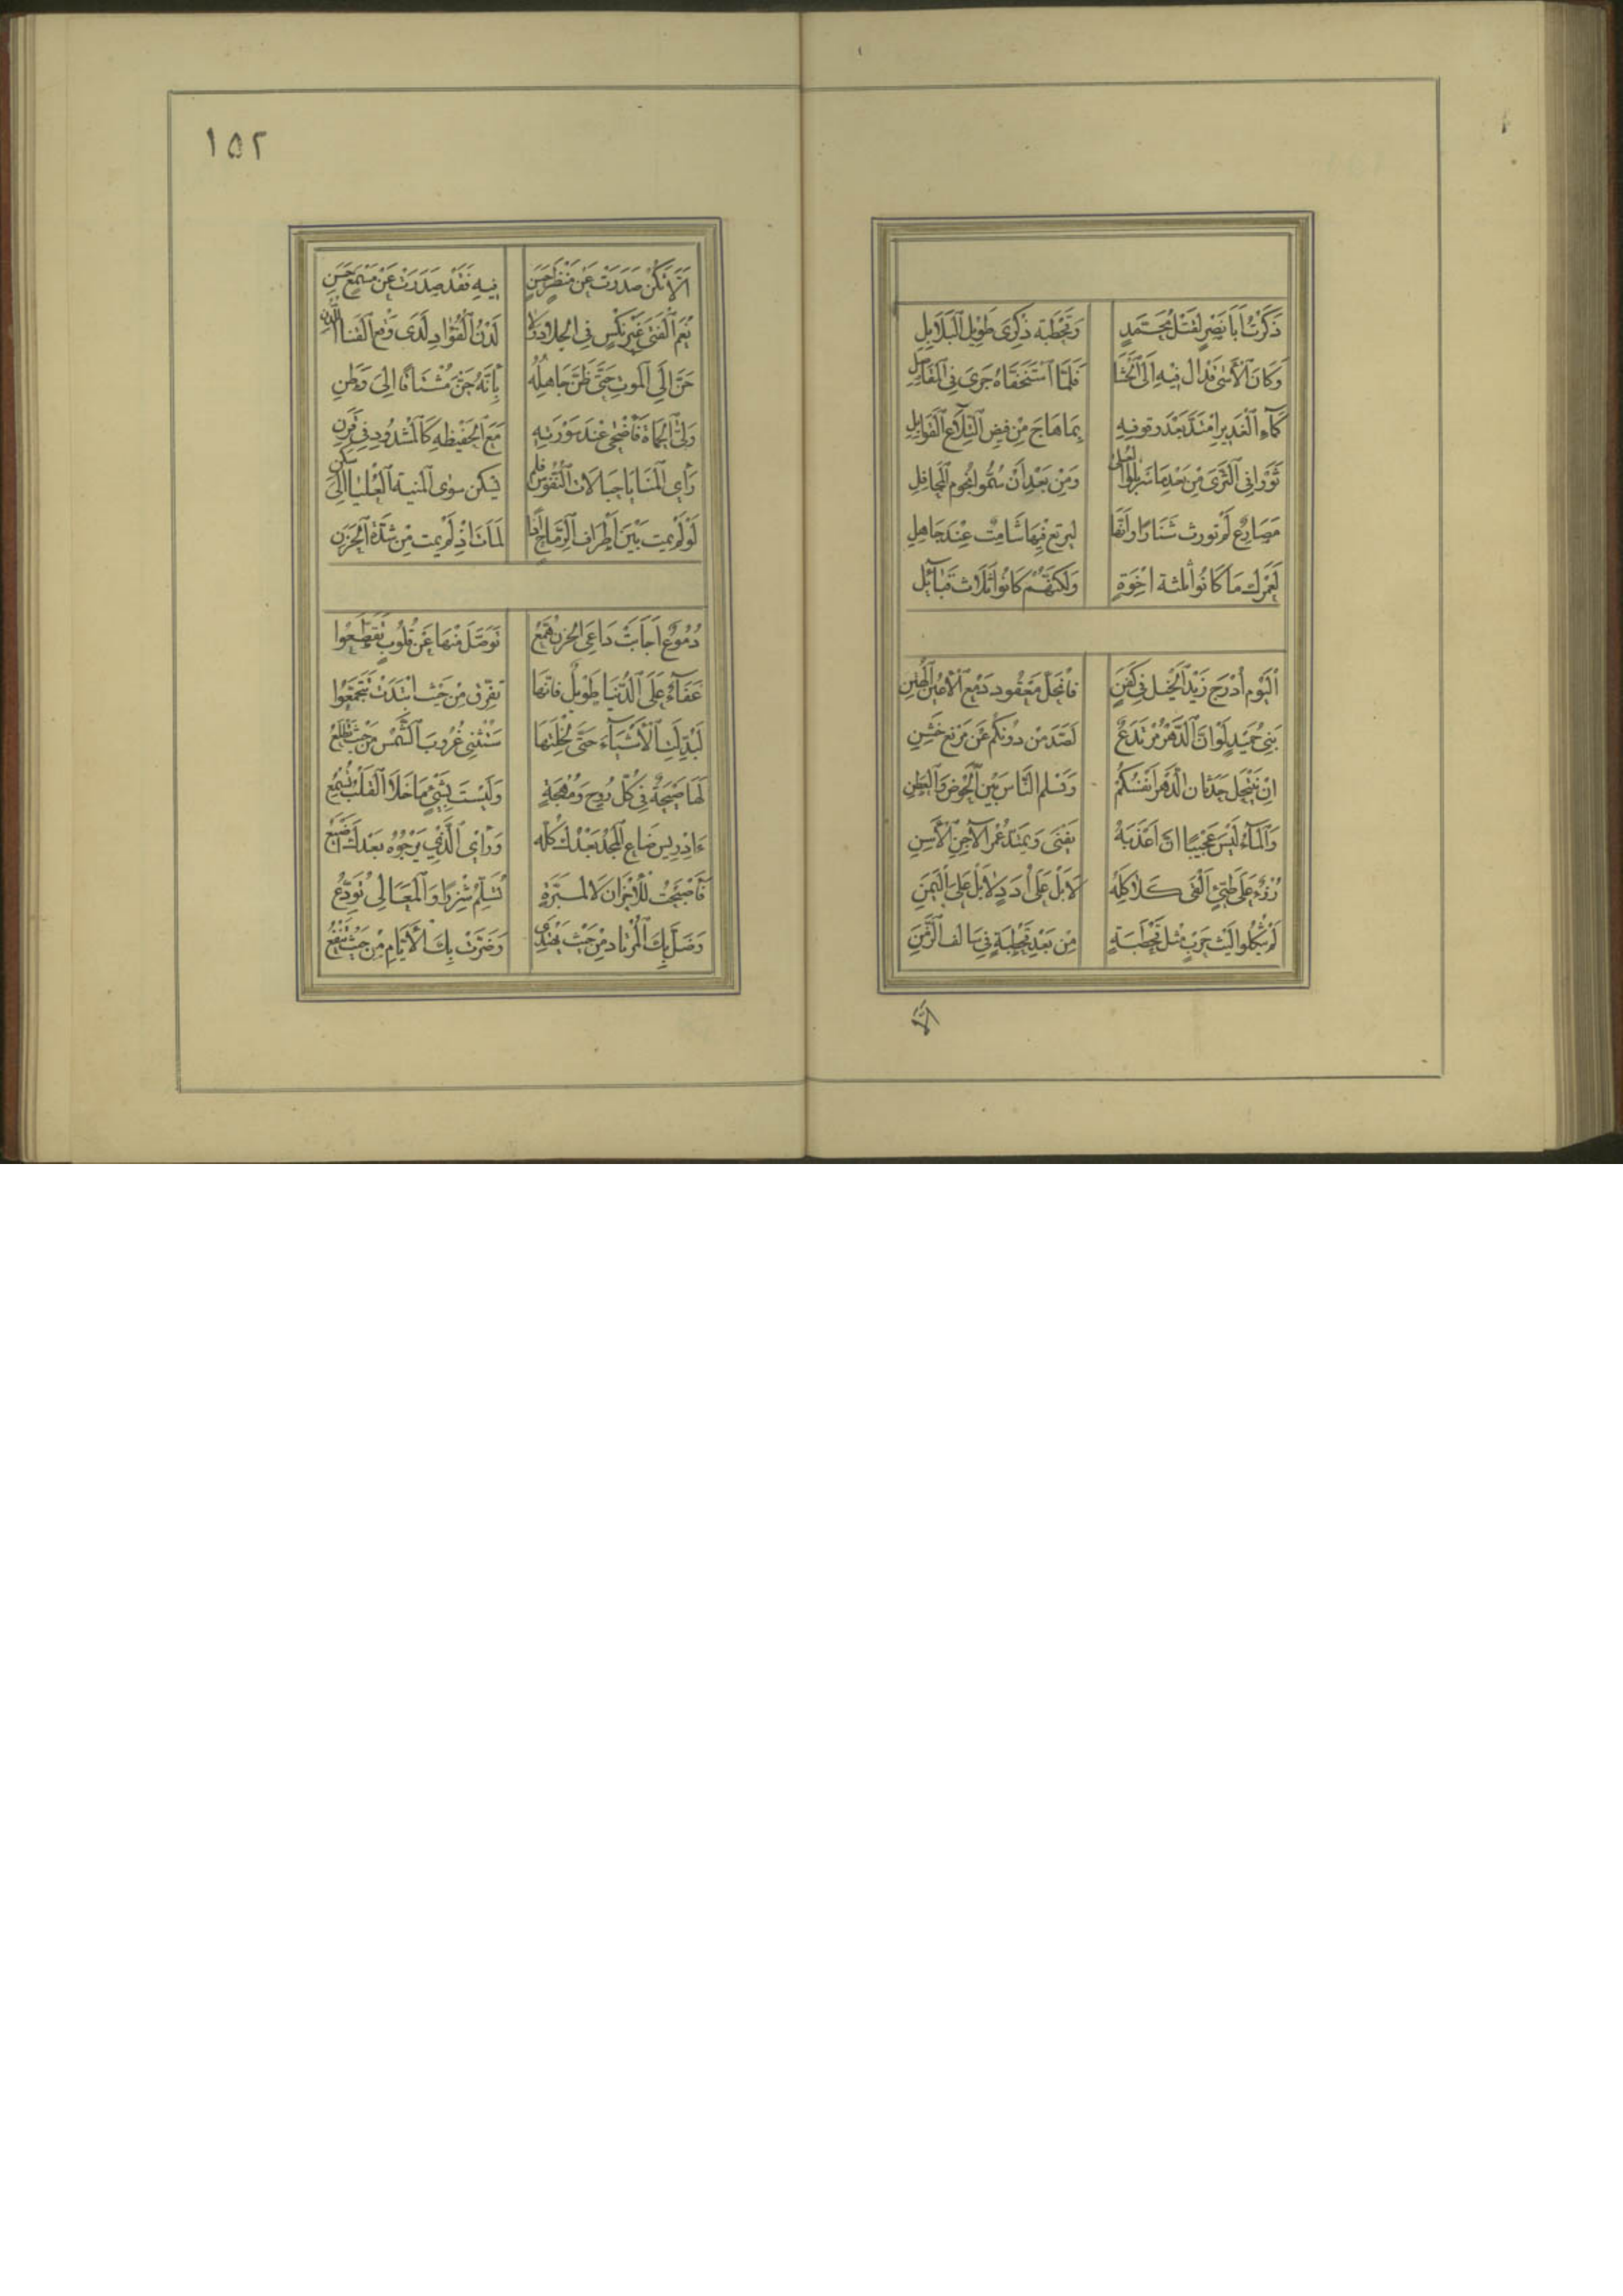 ذَكَرْتُ أَبَا نَصْرٍ لِقَتْلِ مُحَمَّدٍ وَقَحْطَبَةٍ ذِكْرَى طَوِيلِ الْبَلَابِلِ
وَكَانَ الْأَسَى قَدْ آلَ فِيهِ إِلَى الْحَشَا فَلَمَّا اسْتَخَفَّاهُ جَرَى فِي الْمَفَاصِلِ
كَمَاءِ الْغَدِيرِ امْتَدَّ بَعْدَ وُقُوفِهِ بِمَا هَاجَ مِنْ فَيْضِ التِّلَاعِ الْقَوَابِلِ
ثَوَوْا فِي الثَّرَى مِنْ بَعْدِ مَا سَرْبَلُوا الْعُلَى وَمِنْ بَعْدِ أَنْ سُمُّوا نُجُومَ الْمَحَافِلِ
مَصَارِعُ لَمْ تُورِثْ شَنَارًا وَلَهًا لَيَرْتَعُ فِيهَا شَامِتٌ عِنْدَ جَاهِلِ
لَعَمْرُكَ مَا كَانُوا ثَلٰثَةَ إِخْوَةٍ وَلَكِنَّهُمْ كَانُوا ثَلَاثَ قَبَائِلِ
الْيَوْمَ أُدْرِجَ زَيْدُ الْخَيْلِ فِي كَفَنٍ فَانْحَلَّ مَعْقُودُ دَمْعِ الْأَعْيُنِ الْهُتُنِ
بَنِي حُمَيْدٍ لَوَ أَنَّ الدَّهْرَ مُرْتَدَعٌ لَصَدَّ مِنْ دُونِكُمْ عَنْ مَرْتَعٍ خَشِنِ
إِنْ يَنْتَحِلْ حَدَثَانُ الدَّهْرِ أَنْفُسَكُمْ وَتَسْلَمِ النَّاسُ بَيْنَ الْحَوْضِ وَالْعَطَنِ
وَالْمَاءُ لَيْسَ عَجِيبًا أَنَّ أَعْذَبَهُ يَفْنَى وَيَمْتَدُّ عُمْرُ الْآجِنِ الْأَسِنِ
رُزْءٌ عَلَى طَيِّئٍ أَلْقَى كَلَاكِلَهُ لَا بَلْ عَلَى أُدَدٍ لَا بَلْ عَلَى الْيَمَنِ
لَمْ يُثْكَلُوا لَيْثَ حَرْبٍ مِثْلَ قَحْطَبَةٍ مِنْ بَعْدِ قَحْطَبَةٍ فِي سَالِفِ الزَّمَنِ
١٥٢
إِلَّا تَكُنْ صَدَرَتْ عَنْ مَنْظَرٍ حَسَنٍ فِيهِ فَقَدْ صَدَرَتْ عَنْ مَسْمَعٍ حَسَنِ
نِعْمَ الْفَتَى غَيْرَ نِكْسٍ فِي الْجِلَادِ وَلَا لَدْنُ الْفُؤَادِ لَدَى وَقْعِ الْقَنَا اللَّدِنِ
حَنَّ إِلَى الْمَوْتِ حَتَّى ظَنَّ جَاهِلُهُ بِأَنَّهُ حَنَّ مُشْتَاقًا إِلَى وَطَنِ
وَلَّى الْحُمَاةُ فَأَضْحَى عِنْدَ سَوْرَتِهِ مَعَ الْحَفِيظَةِ كَالْمَشْدُودِ فِي قَرَنِ
رَأَى الْمَنَايَا حِبَالَاتِ النُّفُوسِ فَلَمْ يَكُنْ سِوَى الْمَنِيَّةِ الْعُلْيَا إِلَى سَكَنِ
لَوْ لَمْ يَمُتْ بَيْنَ أَطْرَافِ الرِّمَاحِ إِذًا لَمَاتَ إِذْ لَمْ يَمُتْ مِنْ شِدَّةِ الْحَزَنِ
دُمُوعٌ أَجَابَتْ دَاعِيَ الْحُزْنِ هُمَّعُ تَوَصَّلُ مِنْهَا عَنْ قُلُوبٍ تَقَطَّعُوا
عَفَاءٌ عَلَى الدُّنْيَا طَوِيلٌ فَإِنَّهَا تُفَرِّقُ مِنْ حَيْثُ ابْتَدَتْ تَتَجَمَّعُوا
تَبَدَّلَتِ الْأَشْيَاءُ حَتَّى لَخِلْتُهَا سَتُثْنِي غُرُوبَ الشَّمْسِ مِنْ حَيْثُ تَطْلُعُ
لَهَا صَيْحَةٌ فِي كُلِّ رُوحٍ وَمُهْجَةٍ وَلَيْسَتْ بِشَيْءٍ مَا خَلَا الْقَلْبَ تُسْمِعُ
ءَإِدْرِيسُ ضَاعَ الْمَجْدُ بَعْدَكَ كُلُّهُ وَرَأْيُ الَّذِي يَرْجُوهُ بَعْدَكَ أَضْيَعُ
فَأَصْبَحْتَ لِلْأَحْزَانِ لَا لِمَسَرَّةٍ تُسَلِّمُ شَزْرًا وَالْمَعَالِي تُوَدِّعُ
وَضَلَّ بِكَ الْمُرْتَادُ مِنْ حَيْثُ يَهْتَدِي وَضَرَّتْ بِكَ الْأَيَّامُ مِنْ حَيْثُ تَنْفَعُ